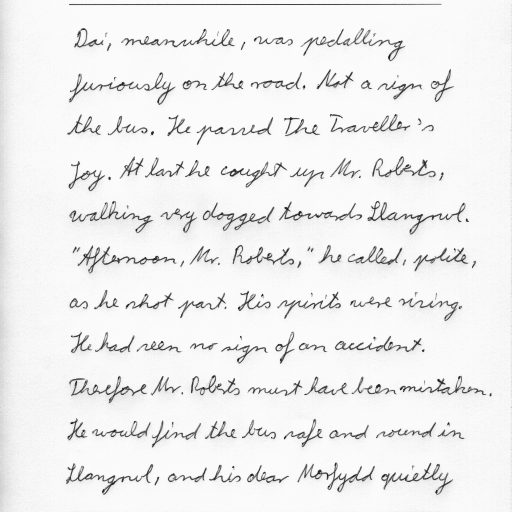 Dai, meanwhile, was pedalling
furiously on the road. Not a sign of
the bus. He passed The Traveller's
Joy. At last he caught up Mr. Roberts,
walking very dogged towards Llangrwl.
"Afternoon, Mr. Roberts," he called, polite,
as he shot past. His spirits were rising.
He had seen no sign of an accident.
Therefore Mr. Roberts must have been mistaken.
He would find the bus safe and sound in
Llangrwl, and his dear Morfydd quietly